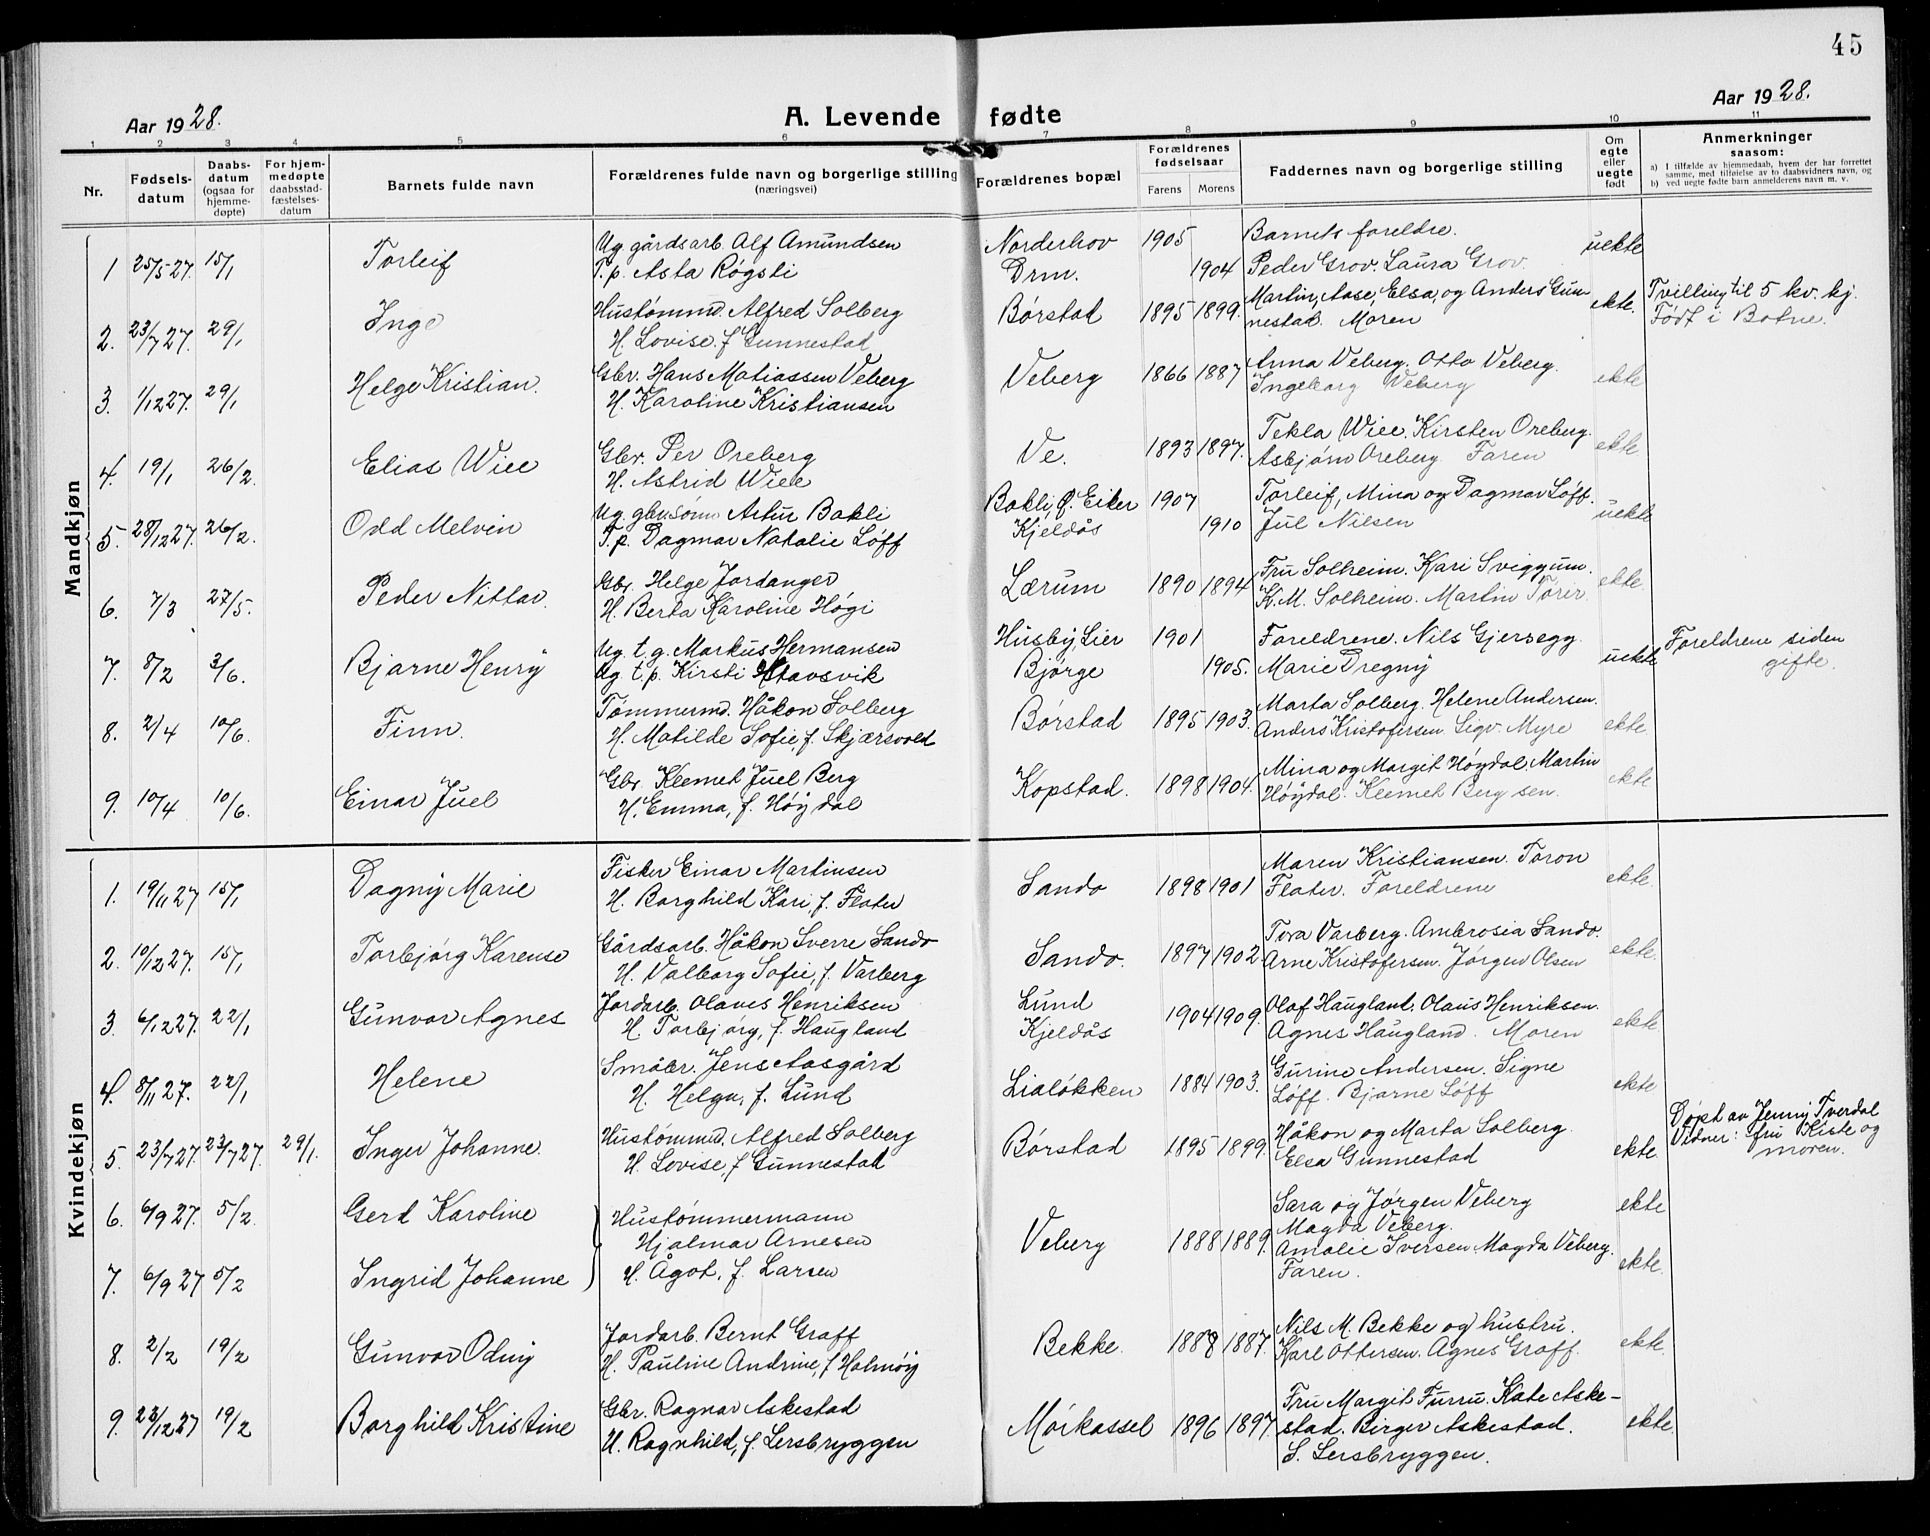 45
Aar 1928.
A. Levende fødte
Aar 1928.
1 2 3 4 5 6 7 8 9 10 11
Nr.
Fødsels-
datum
Daabs-
datum
(ogsaa for
hjemme-
døpte)
For hjem-
medøpte
daabsstad-
fæstelses-
datum
Barnets fulde navn
Forældrenes fulde navn og borgerlige stilling
(næringsvei)
Forældrenes bopæl
Forældrenes
fødselsaar
Farens Morens
Faddernes navn og borgerlige stilling
Om
egte
eller
uegte
født
Anmerkninger
saasom:
a) I tilfælde av hjemmedaab, hvem der har forrettet
samme, med tilføielse av to daabsvidners navn, og
b) ved uegte fødte barn anmelderens navn m. v.
Mandkjøn
1 25/5 27. 15/1 Torleif Ug. gårdsarb. Alf Amundsen Norderhov 1905 Barnets foreldre. uekte
T.p. Asta Røgsli Drm. 1904 Peder Grov. Laura Grov.
2. 23/7 27. 29/1 Inge Hustømmd. Alfred Solberg Børstad 1895 1899. Martin, Aase, Elsa, og Anders Gun- ekte. Tvilling til 5 kv. kj.
H. Lovise, f Gunnestad nestad. Moren Født i Botne.
3. 1/12 27. 29/1 Helge Kristian. Gbr. Hans Matiassen Veberg Veberg 1866 1887 Anna Veberg. Otto Veberg. ekte
H. Karoline Kristiansen Ingeborg Veberg
4. 19/1 26/2. Elias Wiee Gbr. Per Oreberg Ve. 1893 1897. Tekla Wiee. Kirsten Oreberg. ekte
H. Astrid Wiee Asbjørn Oreberg Faren
5. 28/12 27. 26/2. Odd Melvin Ug. gbrusønn Artur Bakli Bakli, Ø. Eiker 1907 Torleif, Mina og Dagmar Løff. uekte
T.p. Dagmar Natalie Løff Kjeldås 1910 Jul Nilsen
6. 7/3 27/5. Peder Nittar. Gbr. Helge Jordanger Lærum 1890 1894 Fru Solheim. Kari Sviggum. ekte.
H. Berta Karoline Høgi K. M. Solheim. Martin Torer.
7. 8/2 3/6. Bjarne Henry Ug. t. g. Markus Hermansen Husby, Lier 1901 Foreldrene. Nils Gjersegg. uekte Foreldrene siden
Ug. t.p. Kirsti Stavsvik Bjørge 1905. Marie Dregny gifte.
8. 2/4 10/6. Finn. Tømmermd. Håkon Solberg Børstad 1895 1903. Marta Solberg. Helene Andersen. ekte
H. Matilde Sofie, f. Skjærsvold Anders Kristofersen. Sigv. Myre
9. 10/4 10/6. Einar Juel Gbr. Klemet Juel Berg Kopstad. 1898 1904. Mina og Margit Høydal, Martin ekte
H. Emma, f. Høydal Høydal. Klemet Berg sen.
Kvindekjøn
1. 19/11 27 15/1 Dagny Marie Fisker Einar Martinsen Sando 1898 1901 Maren Kristiansen. Toron ekte.
H. Borghild Kari, f. Flater Flater. Foreldrene
2. 10/12 27. 15/1 Torbjørg Karense Gårdsarb. Håkon Sverre Sando Sando. 1897 1902. Tora Varberg. Ambrosia Sando. ekte.
H. Valborg Sofie, f. Varberg Arne Kristofersen. Jørgen Olsen
3. 6/12 27. 22/1 Gunvor Agnes Jordarb. Olaves Henriksen Lund 1904 1909. Olaf Haugland. Olaus Henriksen. ekte
H. Torbjørg, f. Haugland Kjeldås Agnes Haugland. Moren
4. 8/11 27. 22/1 Helene Småbr. Jens Aasgård Lialøkken 1884 1903. Gurine Andersen. Signe ekte
H. Helga, f. Lund Løff. Bjarne Løff
5. 23/7 27. 23/7 27. 29/1. Inger Johanne. Hustømmd. Alfred Solberg Børstad 1895 1899. Håkon og Marta Solberg. ekte. Døpt av Jenny Tverdal
H. Lovise, f Gunnestad Elsa Gunnestad Vidner: fru Kiste og
moren.
6. 6/9 27. 5/2. Gerd Karoline Hustømmermann Veberg 1888 1889. Sara og Jørgen Veberg ekte
Hjalmar Arnesen Magda Veberg.
7. 6/9 27 5/2 Ingrid Johanne H. Ågot, f. Larsen Amalie Iversen Magda Veberg. ekte.
Faren.
8. 2/2 19/2 Gunvor Odny Jordarb. Bernt Graff Bekke. 1888 1887. Nils M. Bekke og hustru. ekte.
H. Pauline Andrine, f Holmøy Karl Ottersen. Agnes Graff.
9. 23/12 27 19/2 Borghild Kristine Gbr. Ragnar Askestad Mørkassel 1896 1897. Fru Margit Furru. Kate Aske- ekte.
H. Ragnhild, f. Lersbryggen stad. Birger Askestad.
S. Lersbryggen.